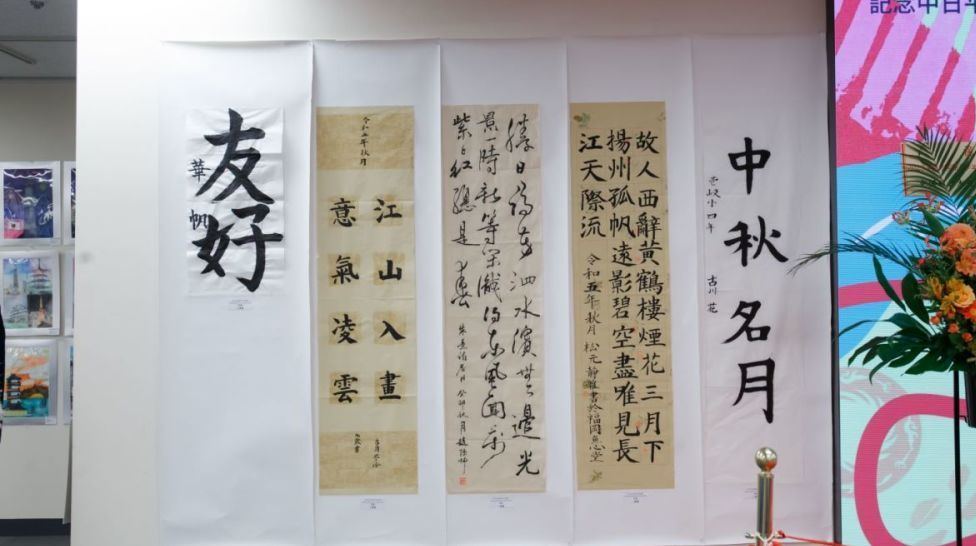 記念中日平
中秋名月
壱岐小四年 古川 花
故人西辭黃鶴樓煙花三月下
揚州孤帆遠影碧空盡唯見長
江天際流
令和五年秋月 松元靜雅書於福岡魚心堂
勝日尋芳泗水濱無邊光
景一時新等閑識得東風面萬
紫千紅總是春
朱熹詩春日 癸卯秋月
令和五年秋月
江山入畫
意氣凌雲
友好
華帆